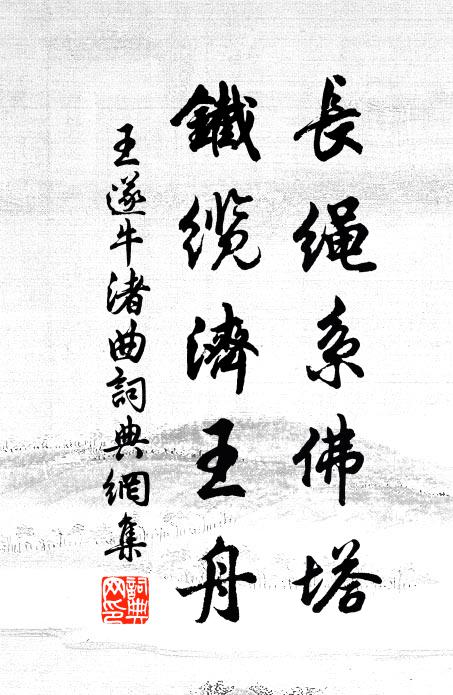 長繩系佛塔
鐵纜濟王舟
王遂牛渚曲詞典網集
詞典網印